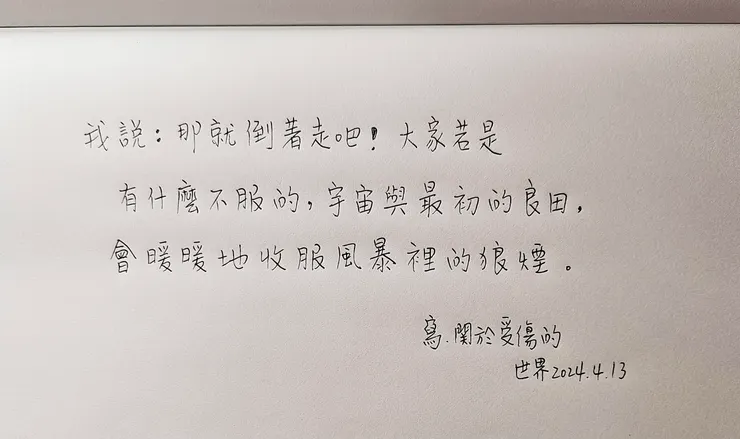 我說：那就倒著走吧！大家若是
有什麼不服的，宇宙與最初的良田，
會暖暖地收服風暴裡的狼煙。
寫.關於受傷的
世界2024.4.13